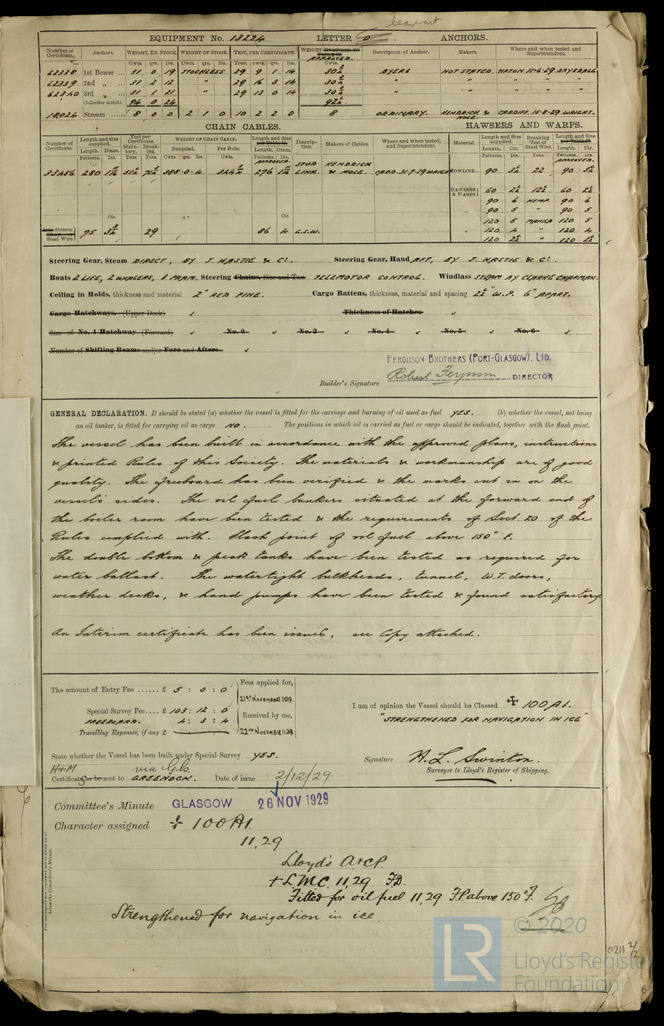 EQUIPMENT No. 13224 LETTER ANCHORS.
Number of Certificate. Anchors. WEIGHT, EX. STOCK. WEIGHT OF STOCK. TEST, PER CERTIFICATE. WEIGHT APPROVED. Description of Anchor. Makers. Where and when tested and Superintendent.
Cwts. qrs. lbs. Cwts. qrs. lbs. Tons. cwts. qrs. lbs. Cwts.
62338 1st Bower 31 0 19 STOCKLESS 29 9 1 14 30½ BYERS NOT STATED.
62339 2nd " 31 2 12 " 29 16 3 14 30½ " "
62340 3rd " 31 1 21 " 29 13 0 14 30½ " "
Collective weight. 94 0 24 92½
18024 Stream 8 0 0 2 1 0 10 2 2 0 8 ORDINARY. KENDRICK & MOLE. CARDIFF. 15-8-29 WRIGHT.
CHAIN CABLES. HAWSERS AND WARPS.
Number of Certificate. Length and size supplied. Test per Certificate. WEIGHT OF CHAIN CABLE. Length and Size APPROVED. Description. Makers of Cables. Where and when tested, and Superintendent. Material. Length and size supplied. Breaking Test of Steel Wire. Length and Size APPROVED.
STUD LINK. KENDRICK & MOLE.
Stream Chain or Steel Wire 95 29 86 4 G.S.W.
HAWSERS & WARPS
90 6 HEMP. 90 6
90 5 " 90 5
120 5 MANILA 120 5
120 4 " 120 4
Steering Gear, Steam DIRECT, BY J. HASTIE & Co. Steering Gear, Hand AFT, BY J. HASTIE & Co.
Boats 2 LIFE, 2 WHALERS, 1 PRAM. Steering Chains, Size and Test TELEMOTOR CONTROL. Windlass STEAM BY CLARKE CHAPMAN.
Ceiling in Holds, thickness and material 2" RED PINE. Cargo Battens, thickness, material and spacing 2½" W.P. 6" APART.
Cargo Hatchways. (Upper Deck) Thickness of Hatches
Size of No. 1 Hatchway (Forward) No. 2 No. 3 No. 4 No. 5 No. 6
Number of Shifting Beams and/or Fore and Afters
FERGUSON BROTHERS (PORT-GLASGOW), LTD.
Builder's Signature Robert Ferguson DIRECTOR
GENERAL DECLARATION. It should be stated (a) whether the vessel is fitted for the carriage and burning of oil used as fuel YES. (b) whether the vessel, not being
an oil tanker, is fitted for carrying oil as cargo NO. The positions in which oil is carried as fuel or cargo should be indicated, together with the flash point.
The vessel has been built in accordance with the approved plans, instructions
& printed Rules of this Society. The materials & workmanship are of good
quality. The freeboard has been verified & the marks cut in on the
vessel's sides. The oil fuel bunkers situated at the forward end of
the boiler room have been tested & the requirements of Sect. 20 of the
Rules complied with. Flash point of oil fuel above 150° F.
The double bottom & peak tanks have been tested as required for
water ballast. The watertight bulkheads, tunnel, W.T. doors,
weather decks, & hand pumps have been tested & found satisfactory
An Interim certificate has been issued, see copy attached.
The amount of Entry Fee ...... £ 5 : 0 : 0 Fees applied for,
21st November 1929.
Special Survey Fee .... £ 103 : 12 : 0 I am of opinion the Vessel should be Classed ✠ 100A1.
FREEBOARD. 4 : 3 : 4 Received by me, "STRENGTHENED FOR NAVIGATION IN ICE"
Travelling Expenses, if any £ 22nd November 1929.
State whether the Vessel has been built under Special Survey YES. Signature H. L. Swinton.
Surveyor to Lloyd's Register of Shipping.
via Gls.
Certificate to be sent to GREENOCK. Date of issue 2/12/29
Committee's Minute GLASGOW 26 NOV 1929
Character assigned ✠ 100A1
11,29
Lloyd's A&CP
+ LMC. 11,29 F.D.
Fitted for oil fuel 11,29 F.P. above 150° F.
Strengthened for navigation in ice.
© 2020
LR Lloyd's Register
Foundation
0211